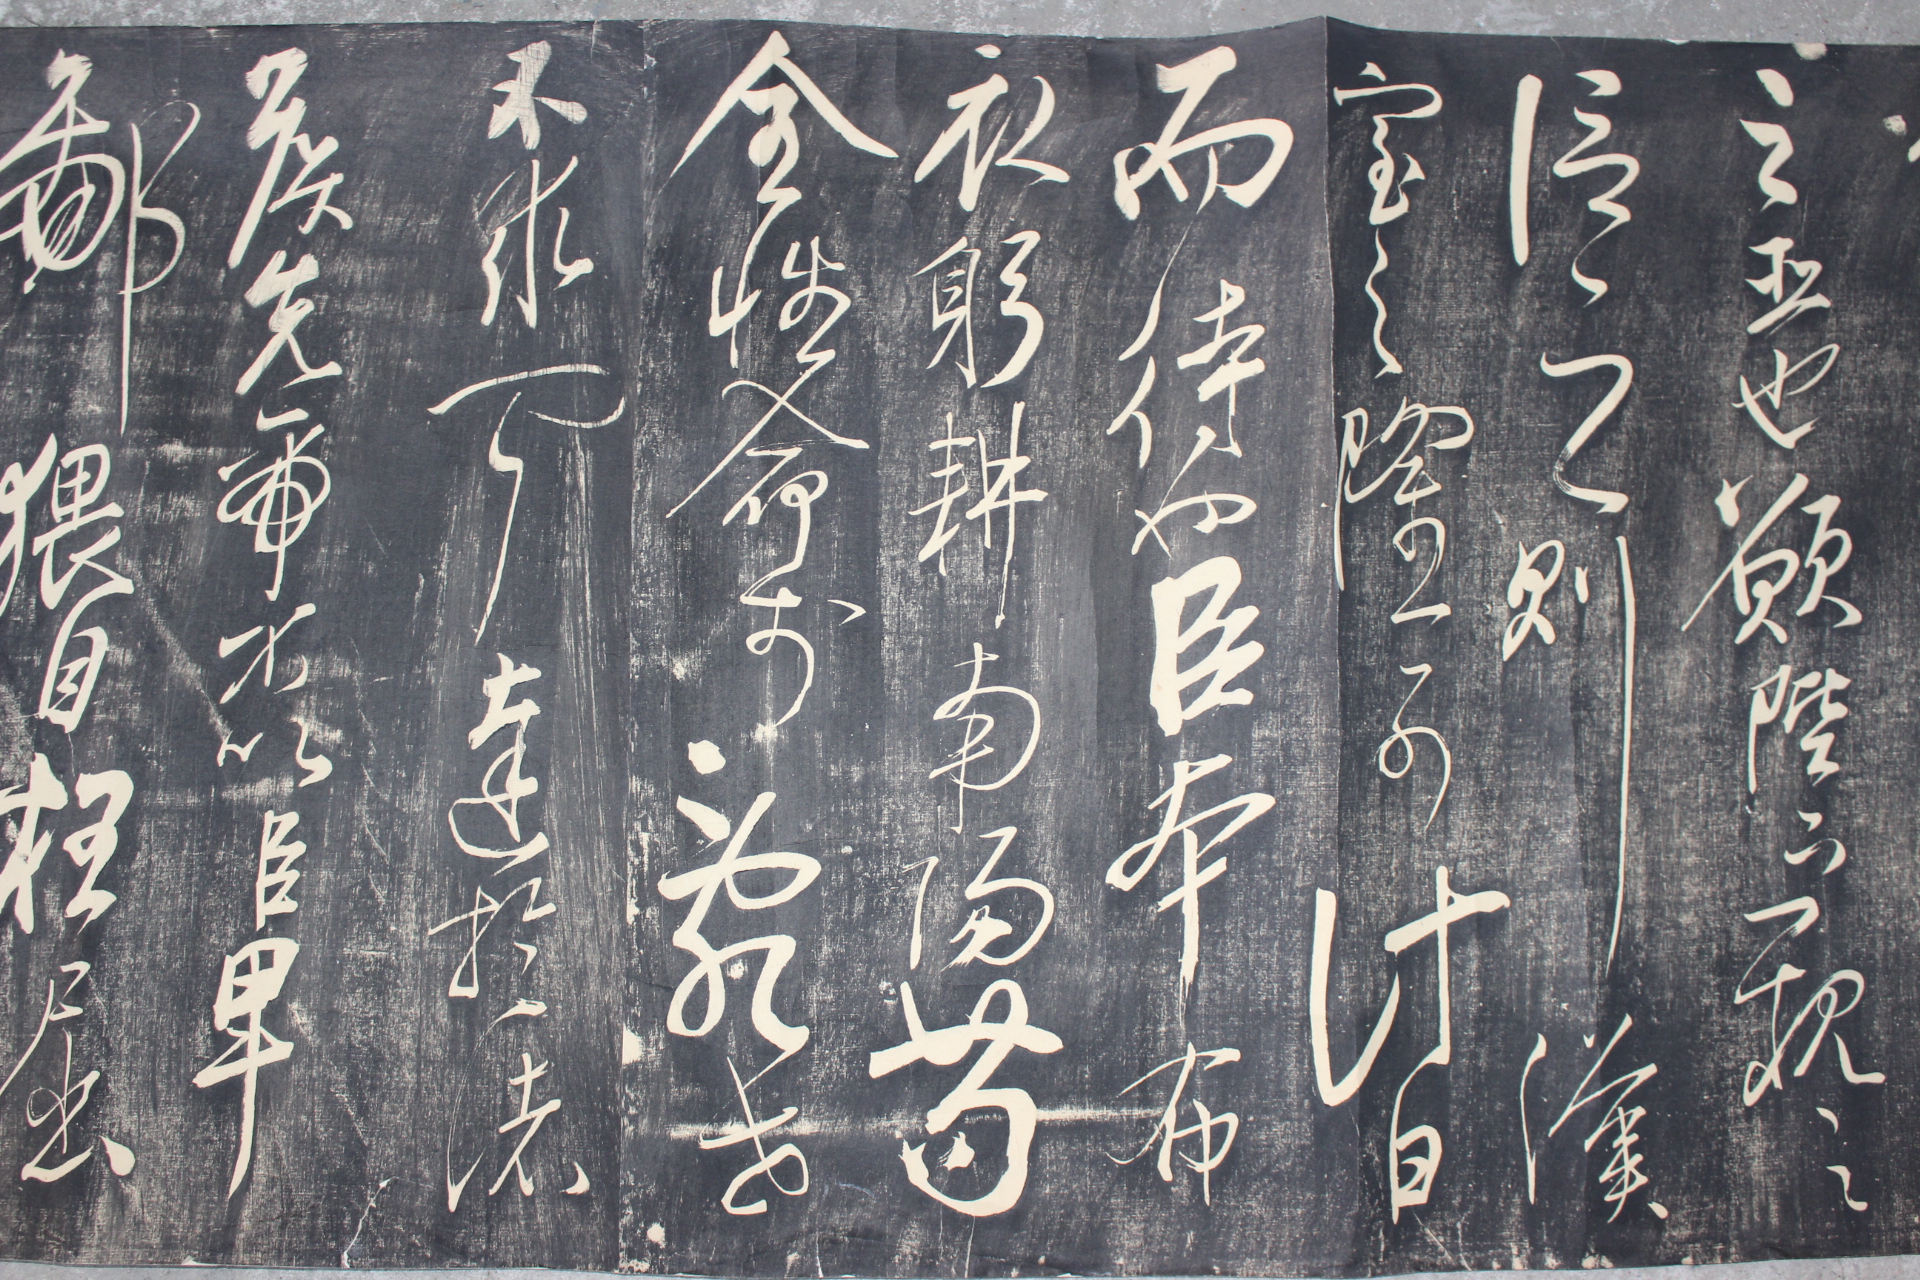 之臣也願陛下親之
信之則漢
室之隆可
計日
而待也臣本布
衣躬耕南陽苟
全性命於亂世
不求聞達於諸
侯先帝不以臣卑
鄙猥自枉屈